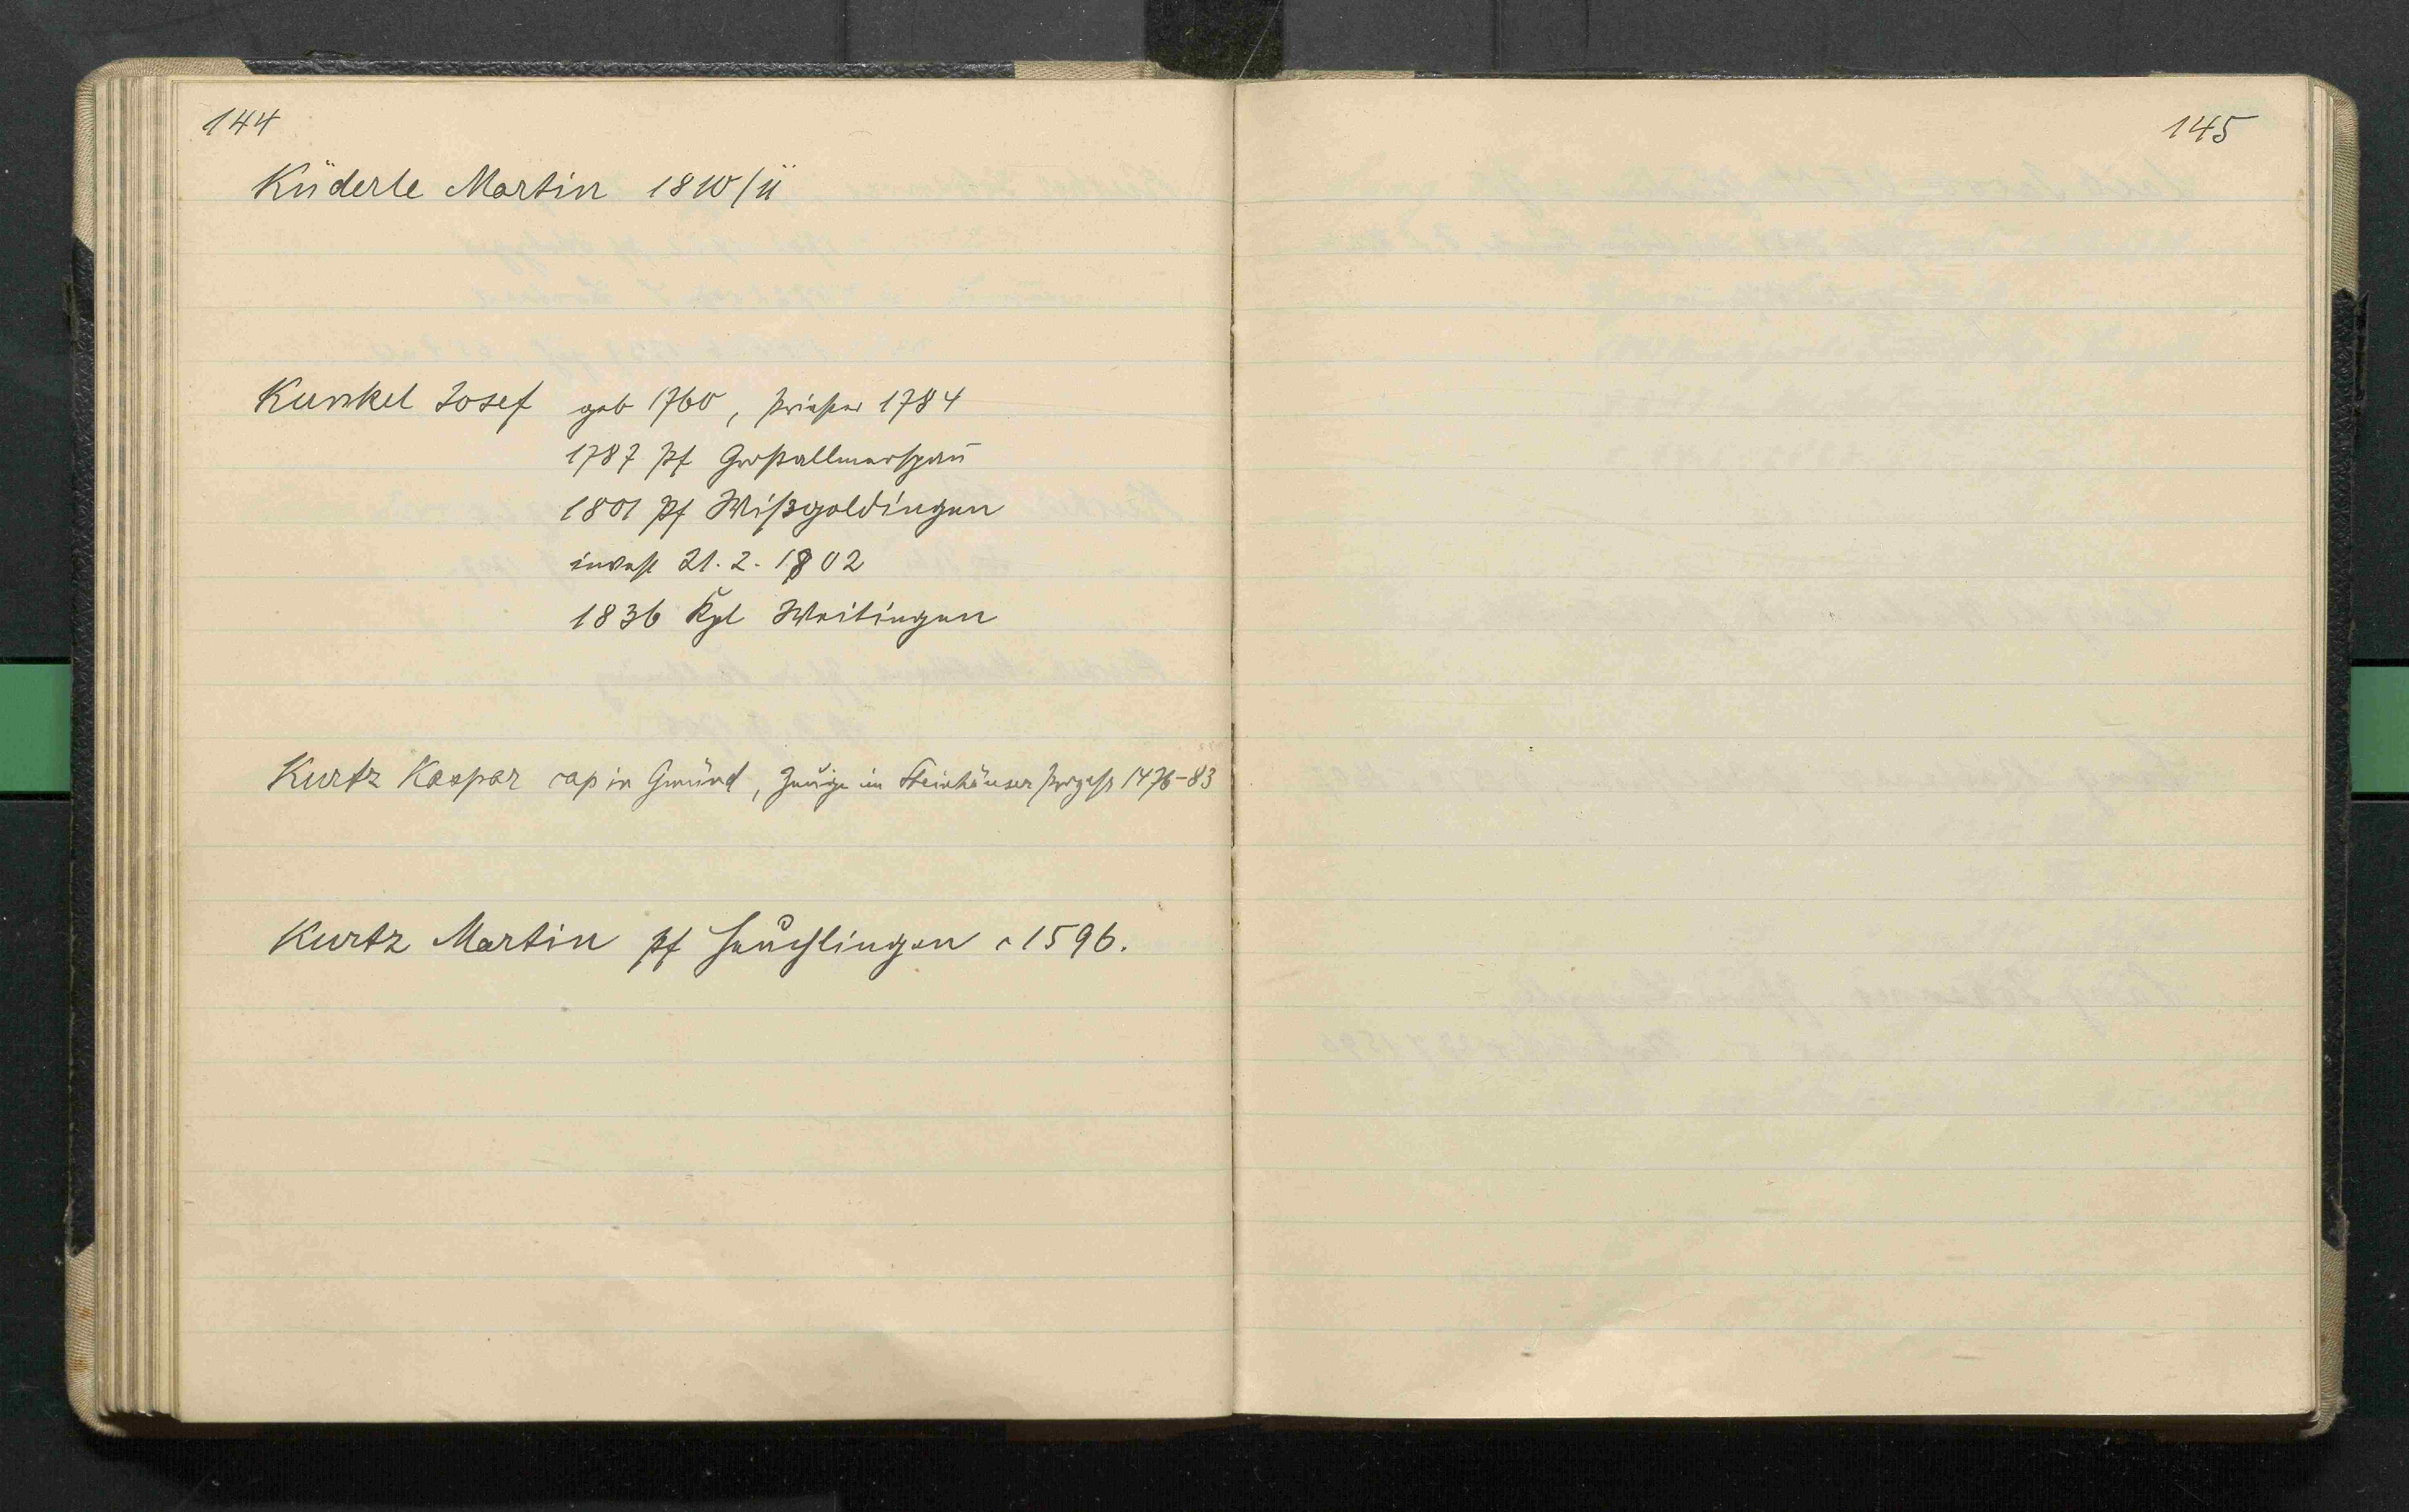 144
Küderle Martin 1810/11
Kunkel Josef geb 1760, Priester 1784
1787 Pf Großallmerspann
1801 Pf Wißgoldingen
invest 21. 2. 1802
1836 Kpl Weitingen
Kurtz Kaspar cap in Gmünd, Zeuge im Steinhäuser Prozeß 1476-83
Kurtz Martin Pf Heuchlingen c 1596.
145